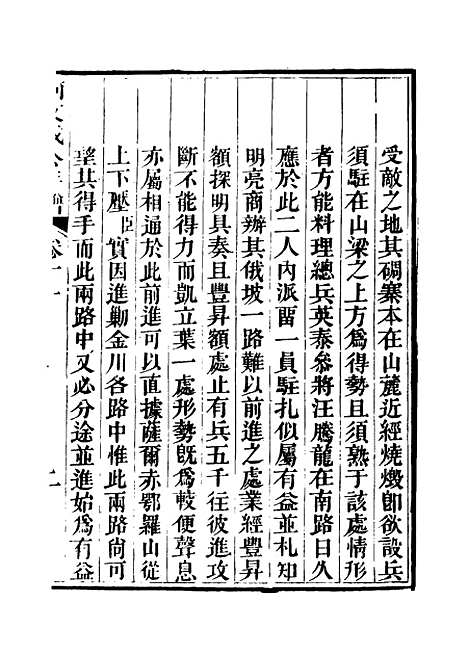 受敵之地其碉寨本在山麓近經燒燬卽欲設兵
須駐在山梁之上方爲得勢且須熟于該處情形
者方能料理總兵英泰參將汪騰龍在南路日久
應於此二人內派畱一員駐扎似屬有益並札知
明亮商辦其俄坡一路難以前進之處業經豐昇
額探明具奏且豐昇額處止有兵五千往彼進攻
斷不能得力而凱立葉一處形勢旣爲較便聲息
亦屬相通於此前進可以直據薩爾赤鄂羅山從
上下壓臣實因進勦金川各路中惟此兩路尙可
望其得手而此兩路中又必分途並進始爲有益
卷十